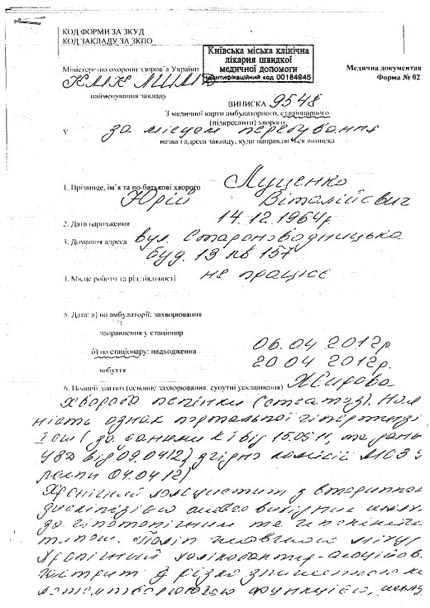 КОД ФОРМИ ЗА ЗКУД
КОД ЗАКЛАДУ ЗА ЗКПО
Київська міська клінічна
лікарня швидкої
медичної допомоги
Ідентифікаційний код 00184945
Міністерство охорони здоров'я України
Медична документац
Форма № 02
найменування закладу
ВИПИСКА 9548
З медичної карти амбулаторного, стаціонарного
(підкреслити) хворого
У за місцем перебування
назва і адреса закладу, куди направляється виписка
1. Прізвище, ім'я та по-батькові хворого Луценко
Юрій Віталійович
2. Дата народження 14.12.1964р
3. Домашня адреса вул. Старонаводницька
буд. 13 кв 157
4. Місце роботи та рід діяльності не працює
5. Дати: а) по амбулаторії: захворювання
направлення у стаціонар
б) по стаціонару: надходження 06.04 2012р
вибуття 20 04 2012р.
6. Повний діагноз (основне захворювання, супутні ускладнення)
Хвороба печінки (стеатоз). Ная
ність ознак портальної гіпертензі
від 15.05.11, та
від 09.04.12), згідно комісії МОЗ У
04.04.12)
Хронічний холецистит з вторинною
дискінезією
до гіпотонічним та
типом. Поліп жовчного міхур
Хронічний
з різко зниженною
функцією,